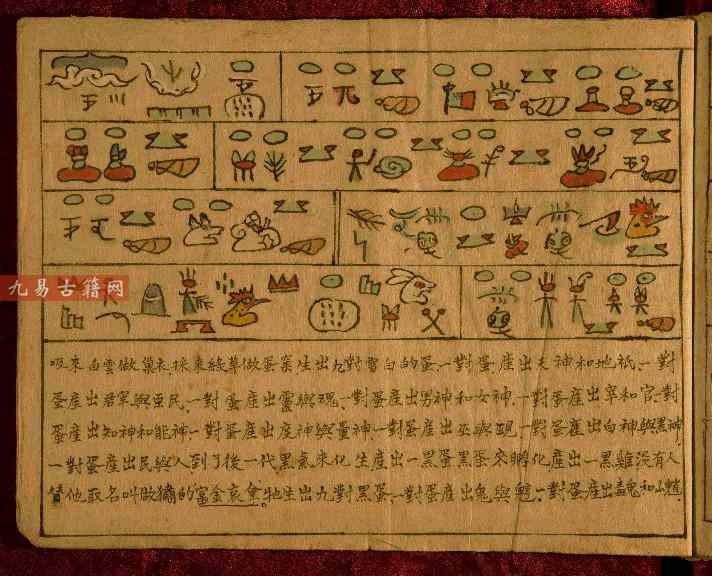 九易古籍网
吸來白雲做巢衣.採來綠草做蛋窠生出九對雪白的蛋.一對蛋產出天神和地祇.一對
蛋產出與臣民.一對蛋產出靈與魂.一對蛋產出男神和女神.一對蛋產出宰和官.一對
蛋產出知神和能神.一對蛋產出度神與量神.一對蛋產出巫與覡.一對蛋產出白神與黑神,
一對蛋產出民與人到了後一代黑氣來化生產出一黑蛋黑蛋來孵化產出一黑雞没有人
替他取名叫做的富金哀牠生出九對黑蛋.一對蛋產出鬼與.一對蛋產出和